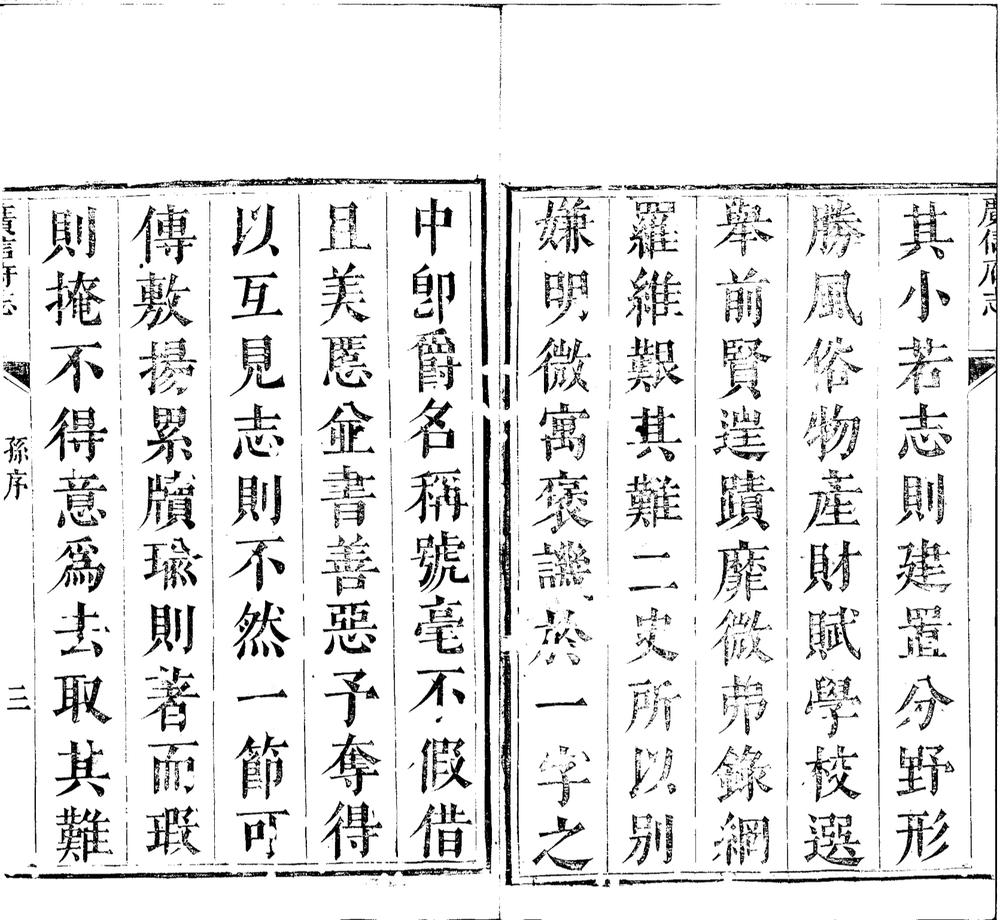 廣信府志
其小若志則建置分野形
勝風俗物產財賦學校選
舉前賢逞蹟靡微弗錄網
羅維艱其難二史所以别
嫌明微寓褒譏於一字之
中卽爵名稱號毫不假借
且美慝並書善惡予奪得
以互見志則不然一節可
傳敷揚累牘瑜則著而瑕
則掩不得意爲去取其難
廣信府志
孫序
三